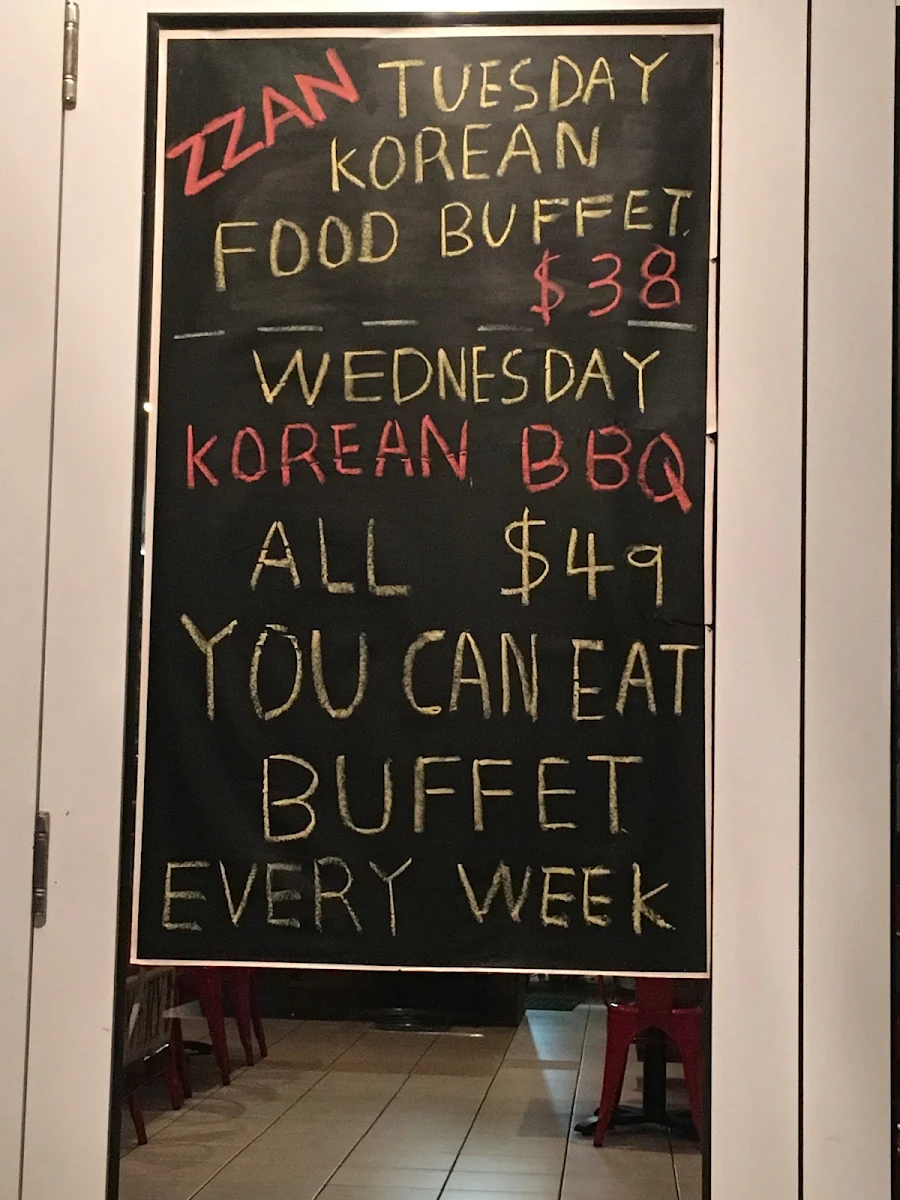 ZZAN TUESDAY
KOREAN
FOOD BUFFET
$38
WEDNESDAY
KOREAN BBQ
ALL $49
YOU CAN EAT
BUFFET
EVERY WEEK